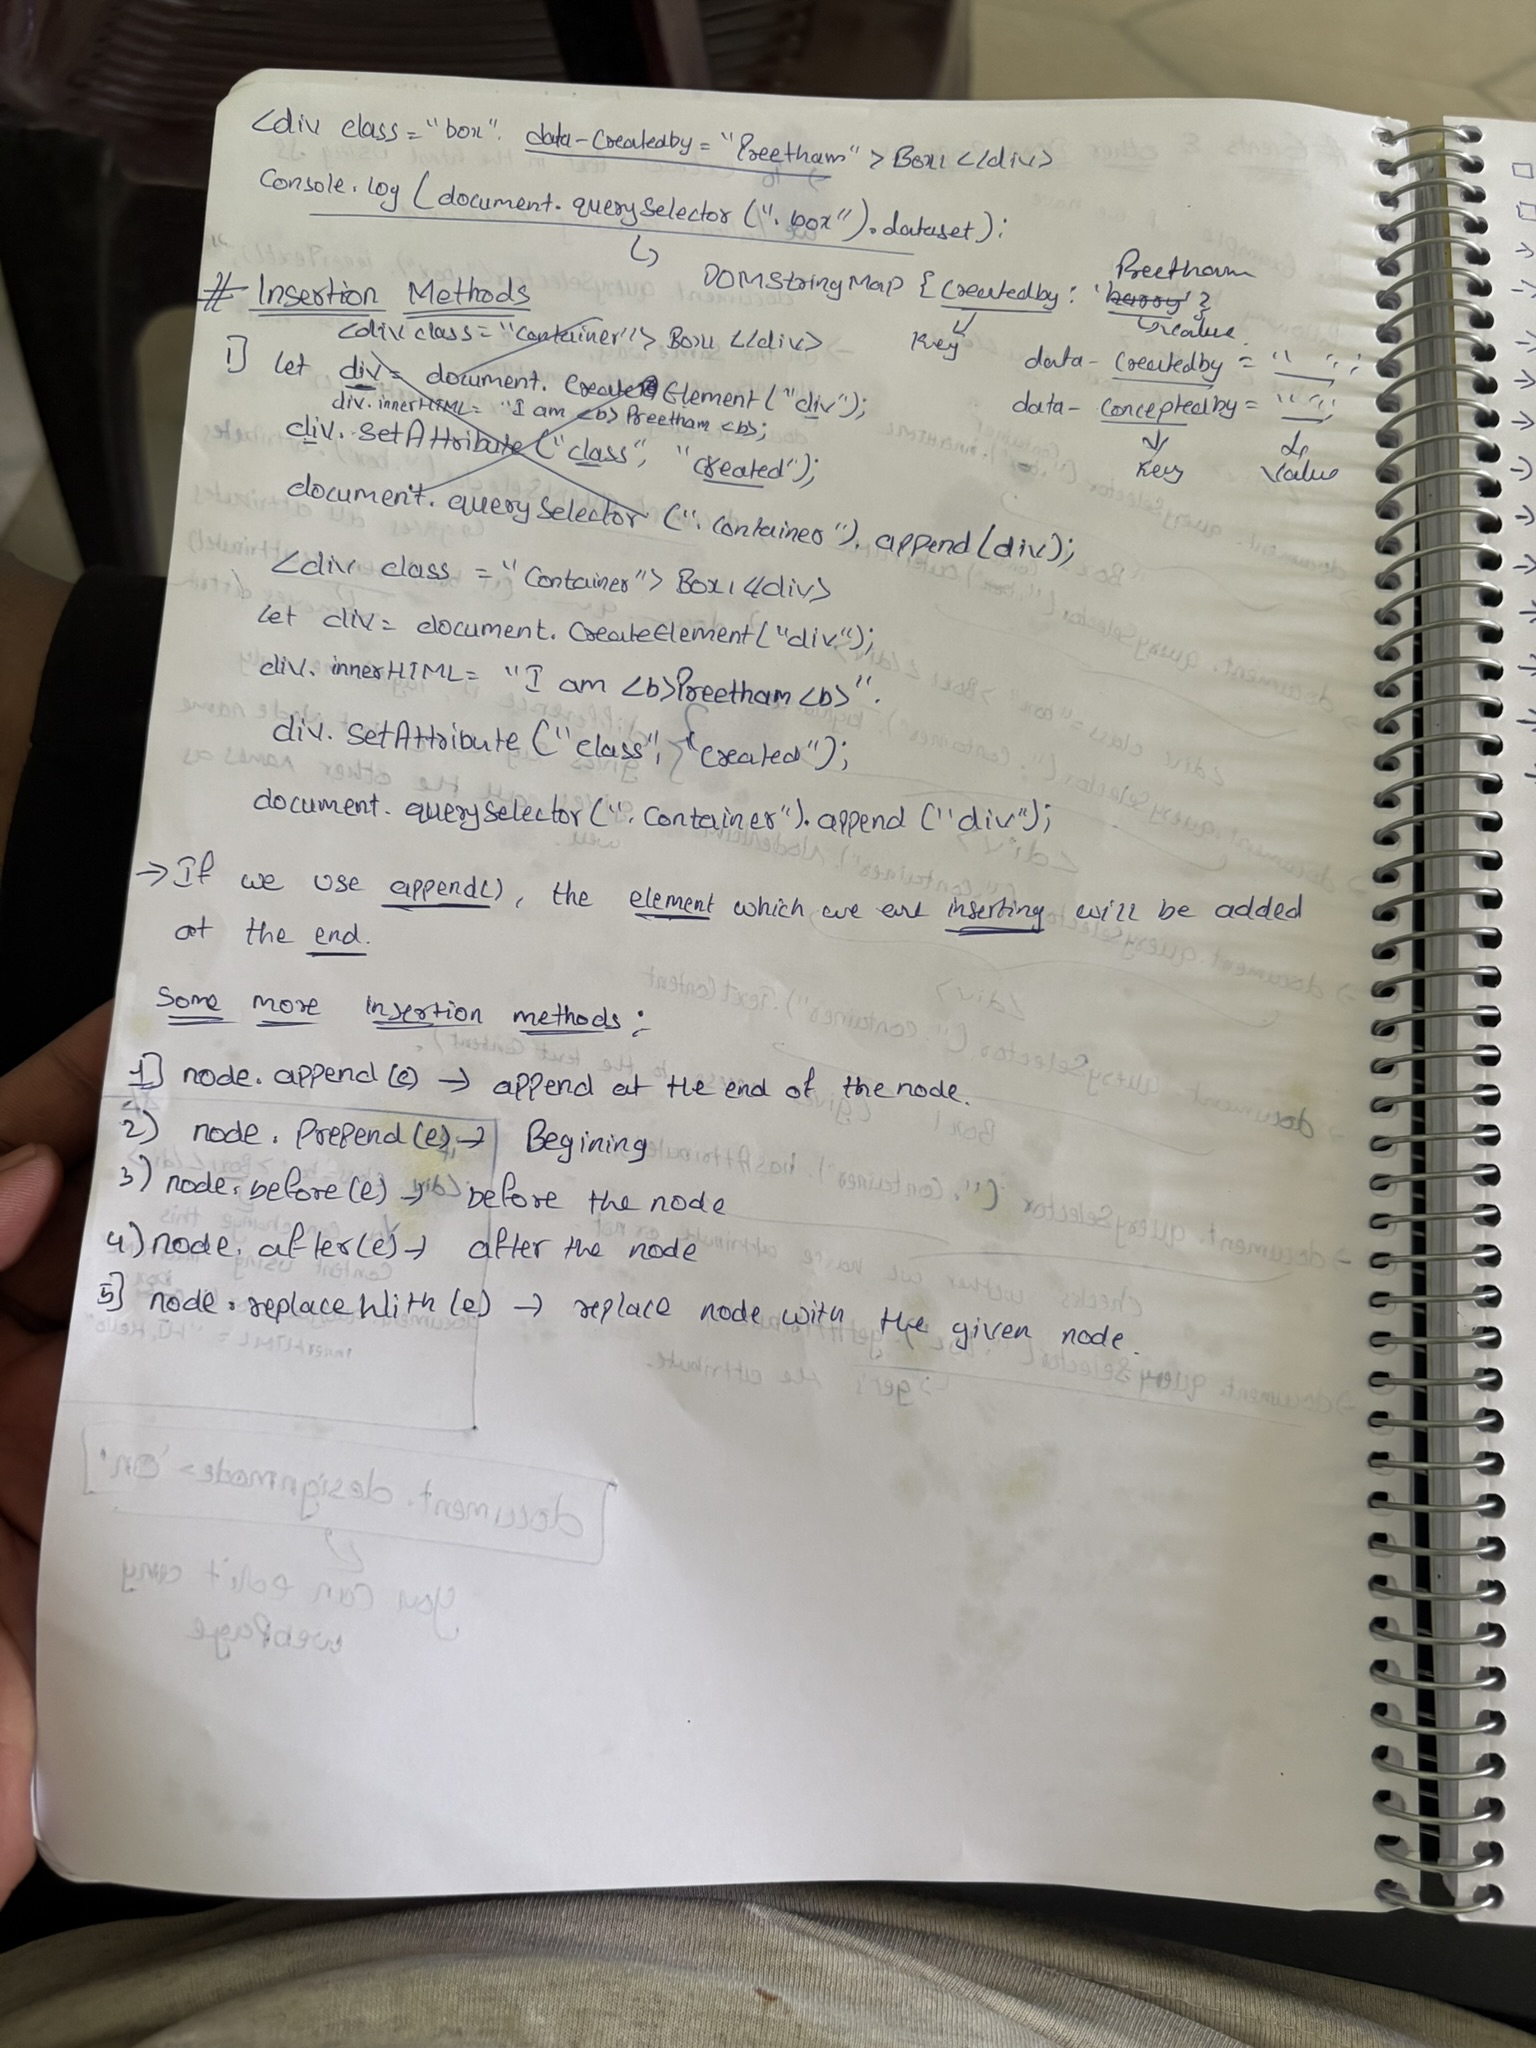 <div class="box" data-createdby = "Preetham" > Box1 </div>
Console.log (document.querySelector (".box").dataset);
DOMStringMap { createdby : 'harry' }
Preetham
key
value
# Insertion Methods
<div class = "container"> Box1 </div>
data-createdby = " "
1] Let div = document. createElement ("div");
data-conceptedby = " "
div.innerHTML = "I am <b> Preetham <b>;
key value
div. setAttribute ("class", "created");
document. querySelector (". container"). append (div);
<div class = "Container"> Box1 </div>
Let div = document. CreateElement ("div");
div. innerHTML = "I am <b>Preetham <b>".
div. SetAttribute ("class", "created");
document. querySelector (". Container"). append ("div");
→ If we use append(), the element which we are inserting will be added
at the end.
Some more insertion methods :
1] node. append (e) → append at the end of the node.
2) node. Prepend (e) → Begining
3) node. before (e) → before the node
4) node. after (e) → after the node
5] node. replaceWith (e) → replace node with the given node.